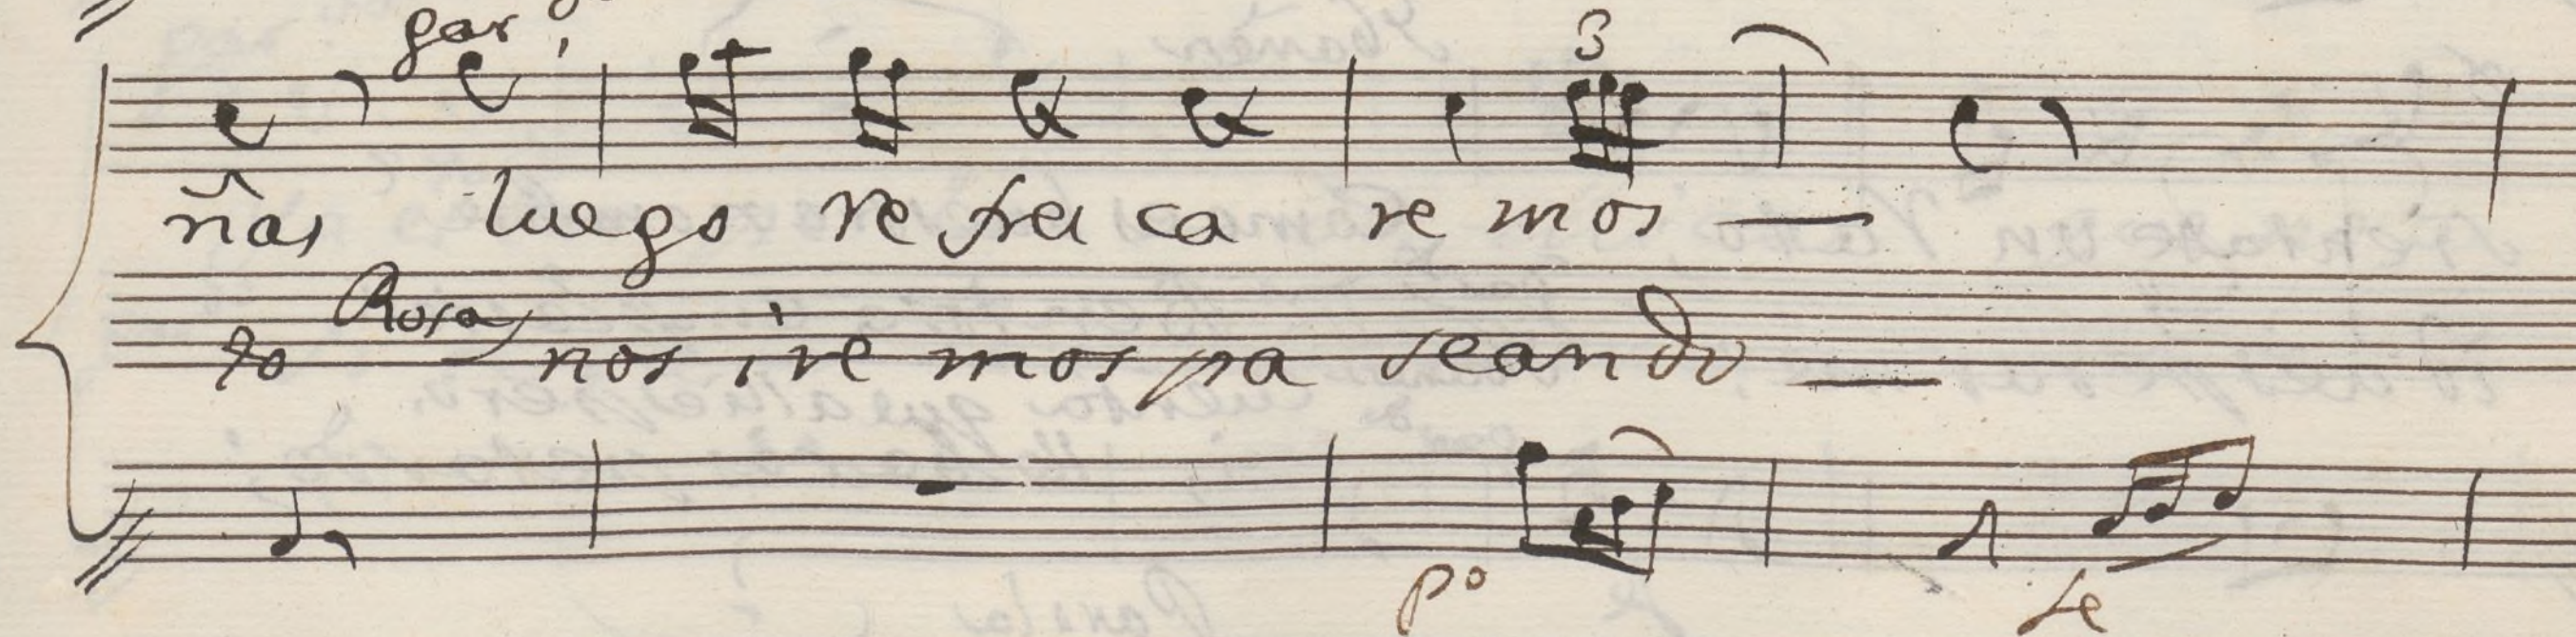 gar
3
ñas luego refrescaremos —
Rosa
to nos iremos paseando —
po fe